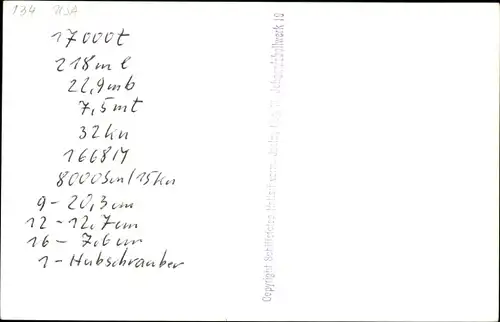 134 USA
17000t
218 m l
22,9 m b
7,5 m t
32 kn
1668 M
8000 Sm/15 kn
9 - 20,3 cm
12 - 12,7 cm
16 - 7,6 cm
1 - Hubschrauber
Copyright Schiffsfotos
Johannisbollwerk 19